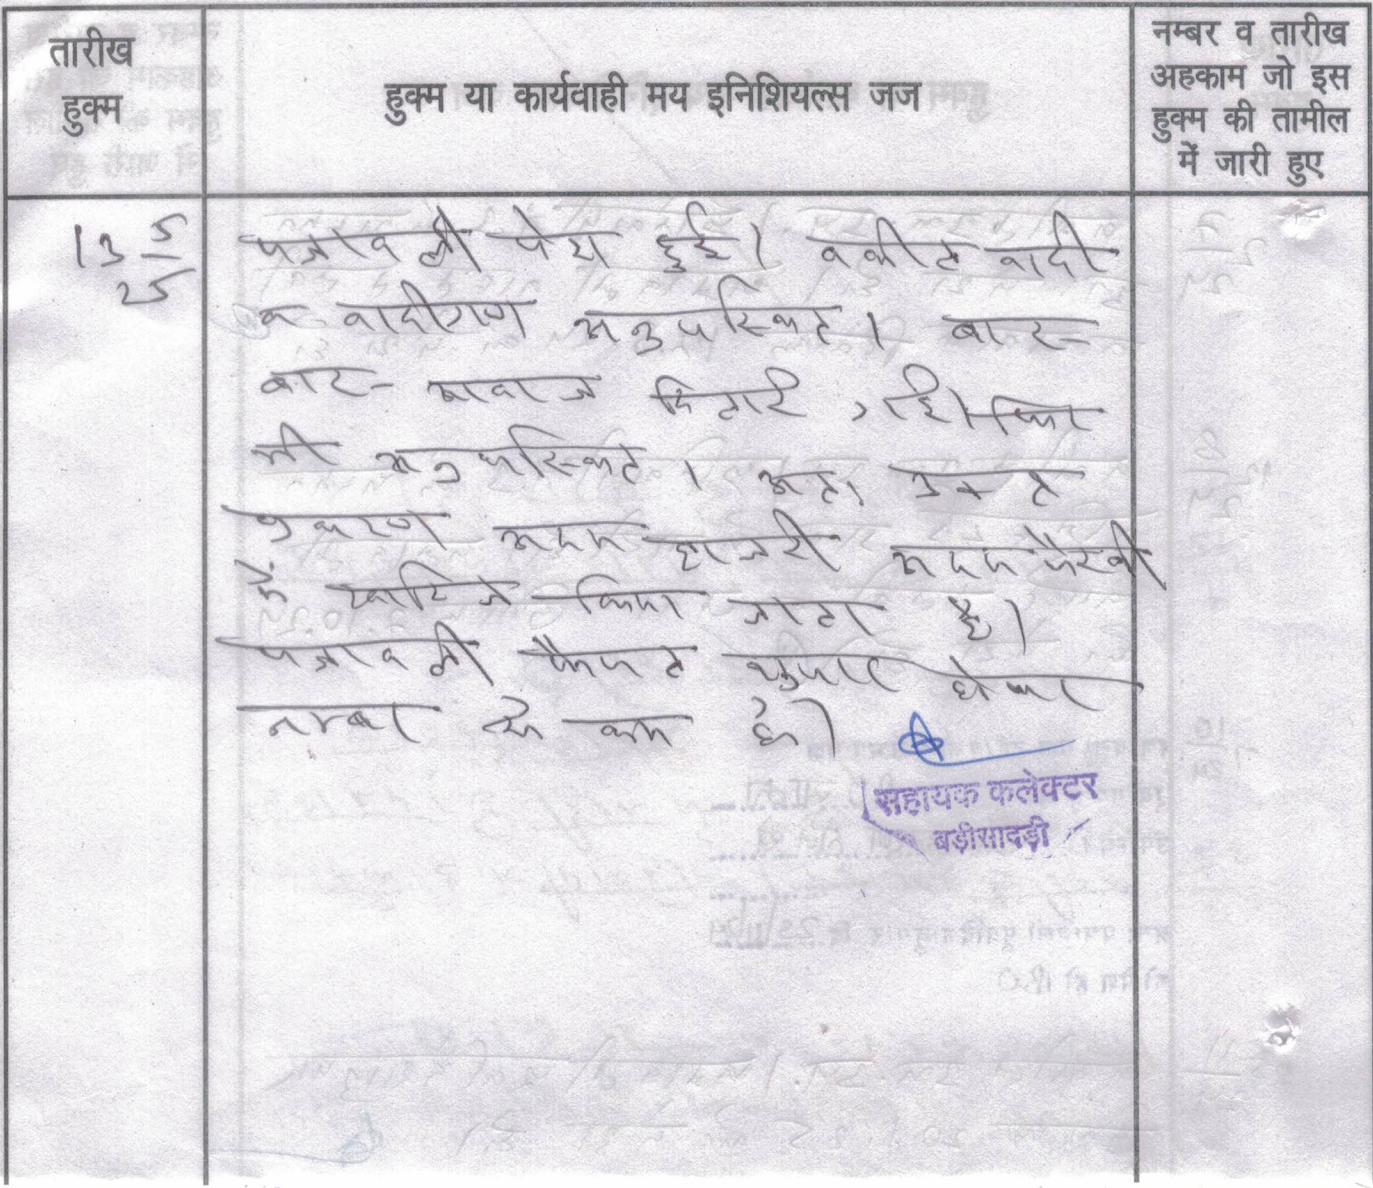 तारीख
हुक्म
हुक्म या कार्यवाही मय इनिशियल्स जज
नम्बर व तारीख
अहकाम जो इस
हुक्म की तामील
में जारी हुए
13 5/25
पत्रावली पेश हुई। वकील वादी
व वादीगण अनुपस्थित। बार-
बार आवाज दिलाई गई।
भी अनुपस्थित। अतः उक्त
प्रकरण अदम हाजरी अदम पैरवी
में खारिज किया जाता है।
पत्रावली फैसल शुमार होकर
नम्बर से कम हो।
सहायक कलेक्टर
बड़ीसादड़ी